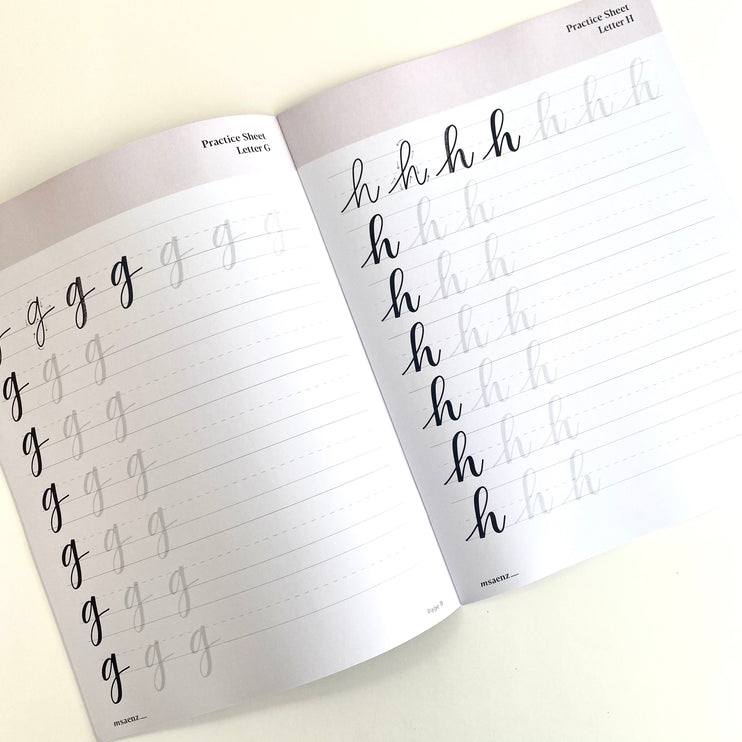 Practice Sheet
Letter G
g g g g g g
g g g
g g g
g g g
g g g
g g g
g g g
msaenz__
Page 9
Practice Sheet
Letter H
h h h h h h h
h h h
h h h
h h h
h h h
h h h
h h h
msaenz__